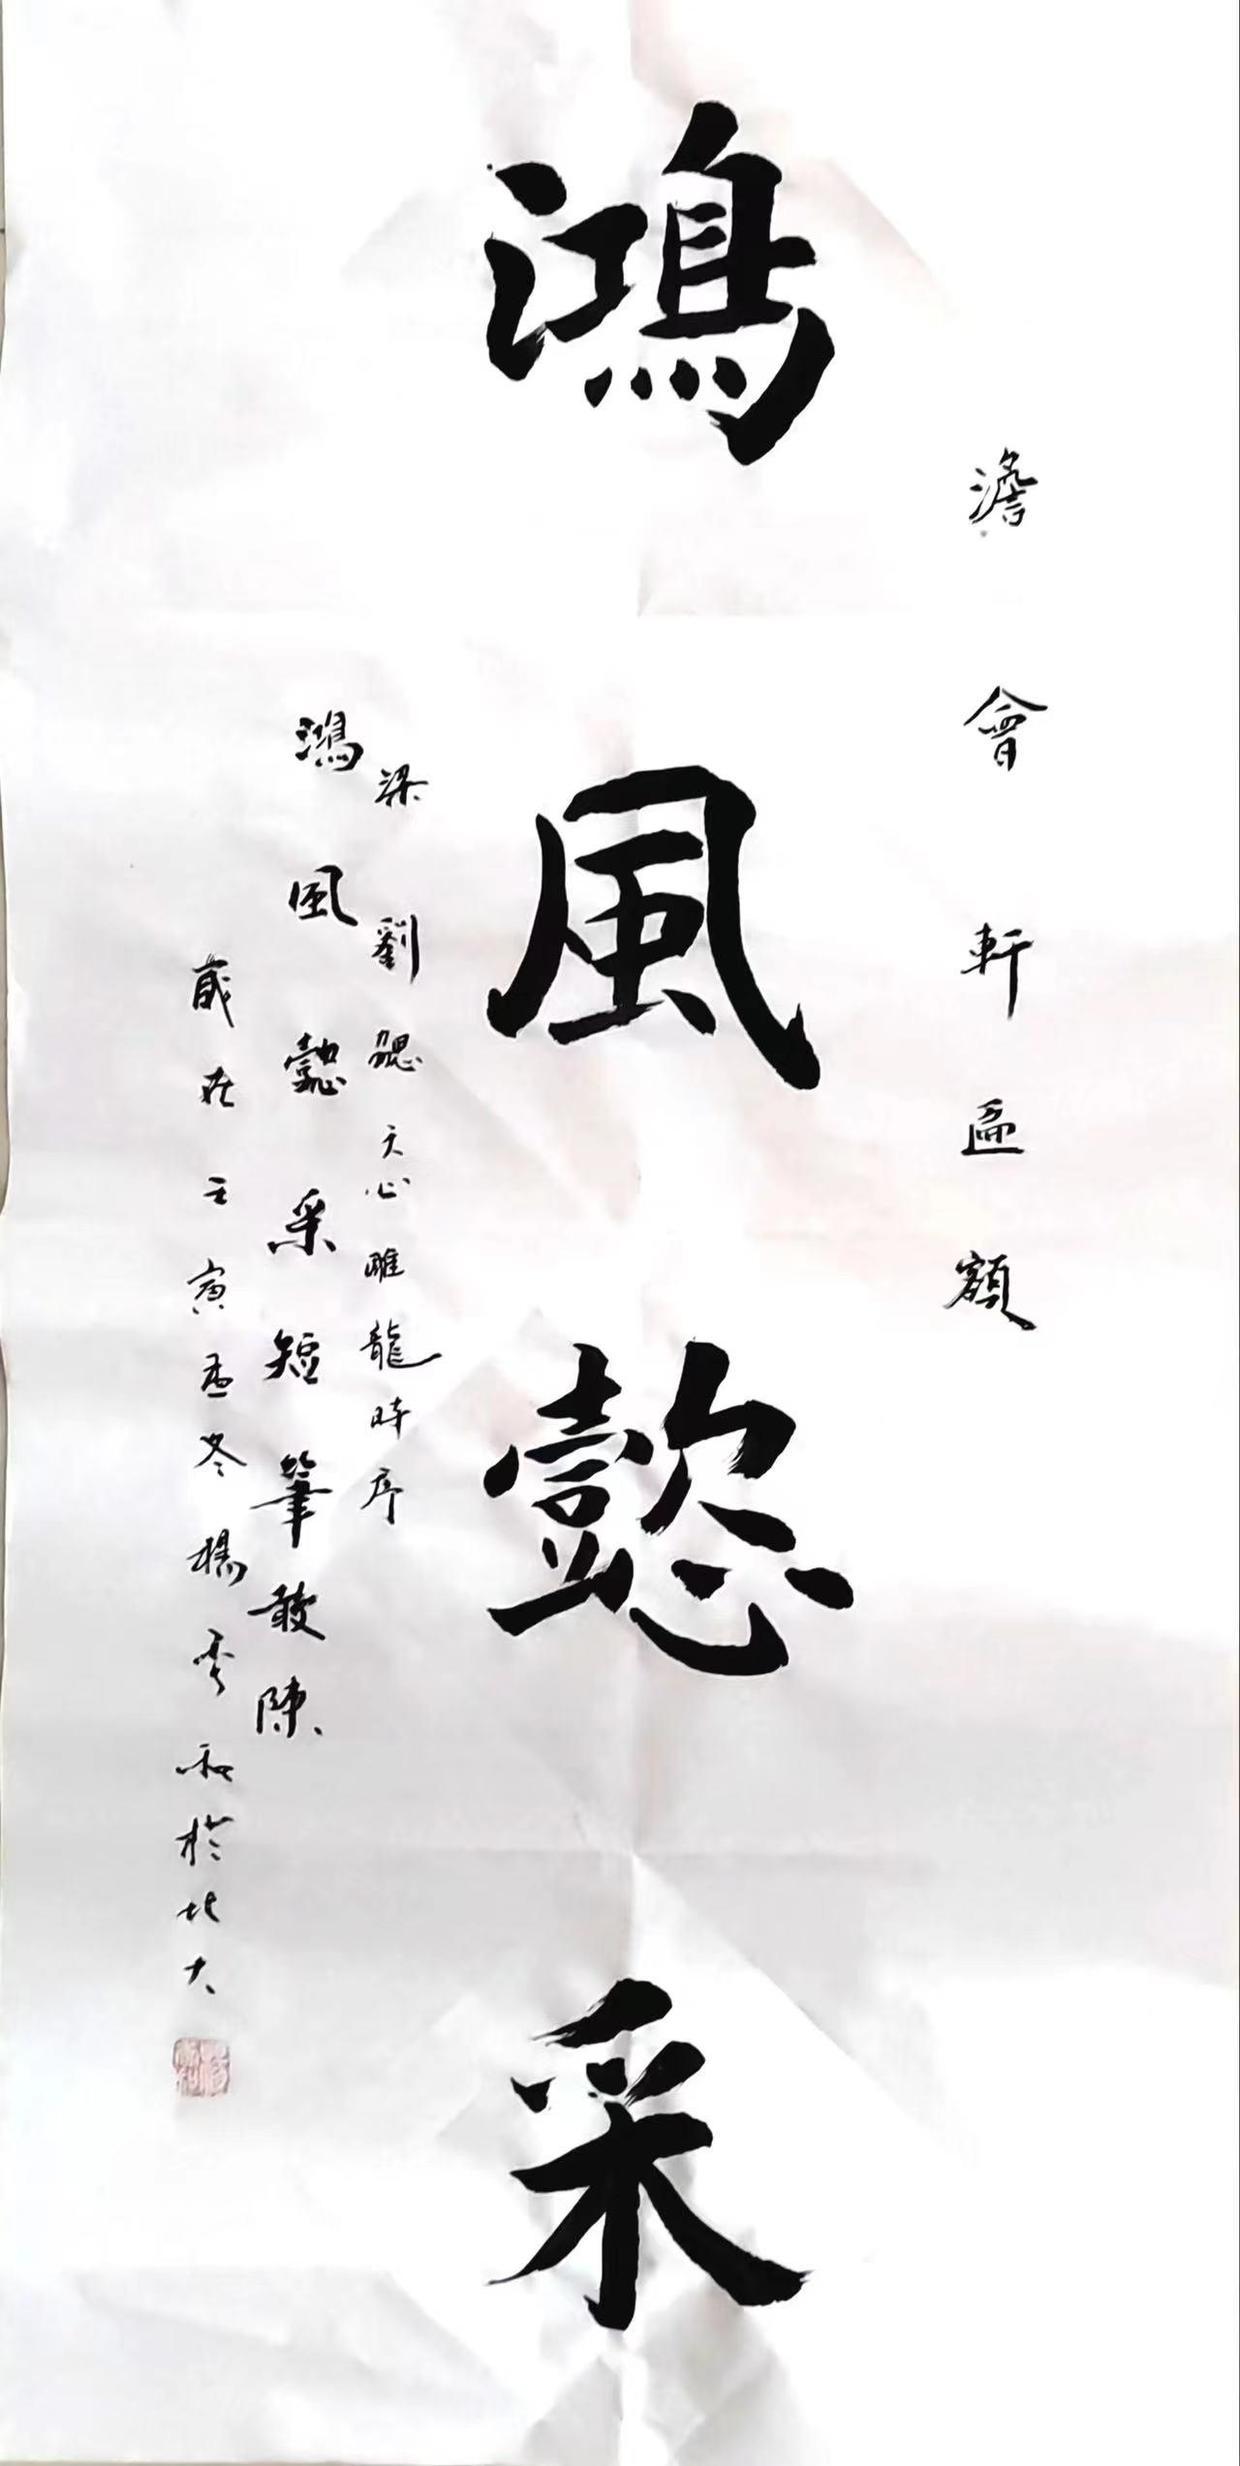 澹會軒匾額
鴻風懿采
梁劉勰文心雕龍時序
鴻風懿采短筆敢陳
歲在壬寅孟冬楊秀和於北大